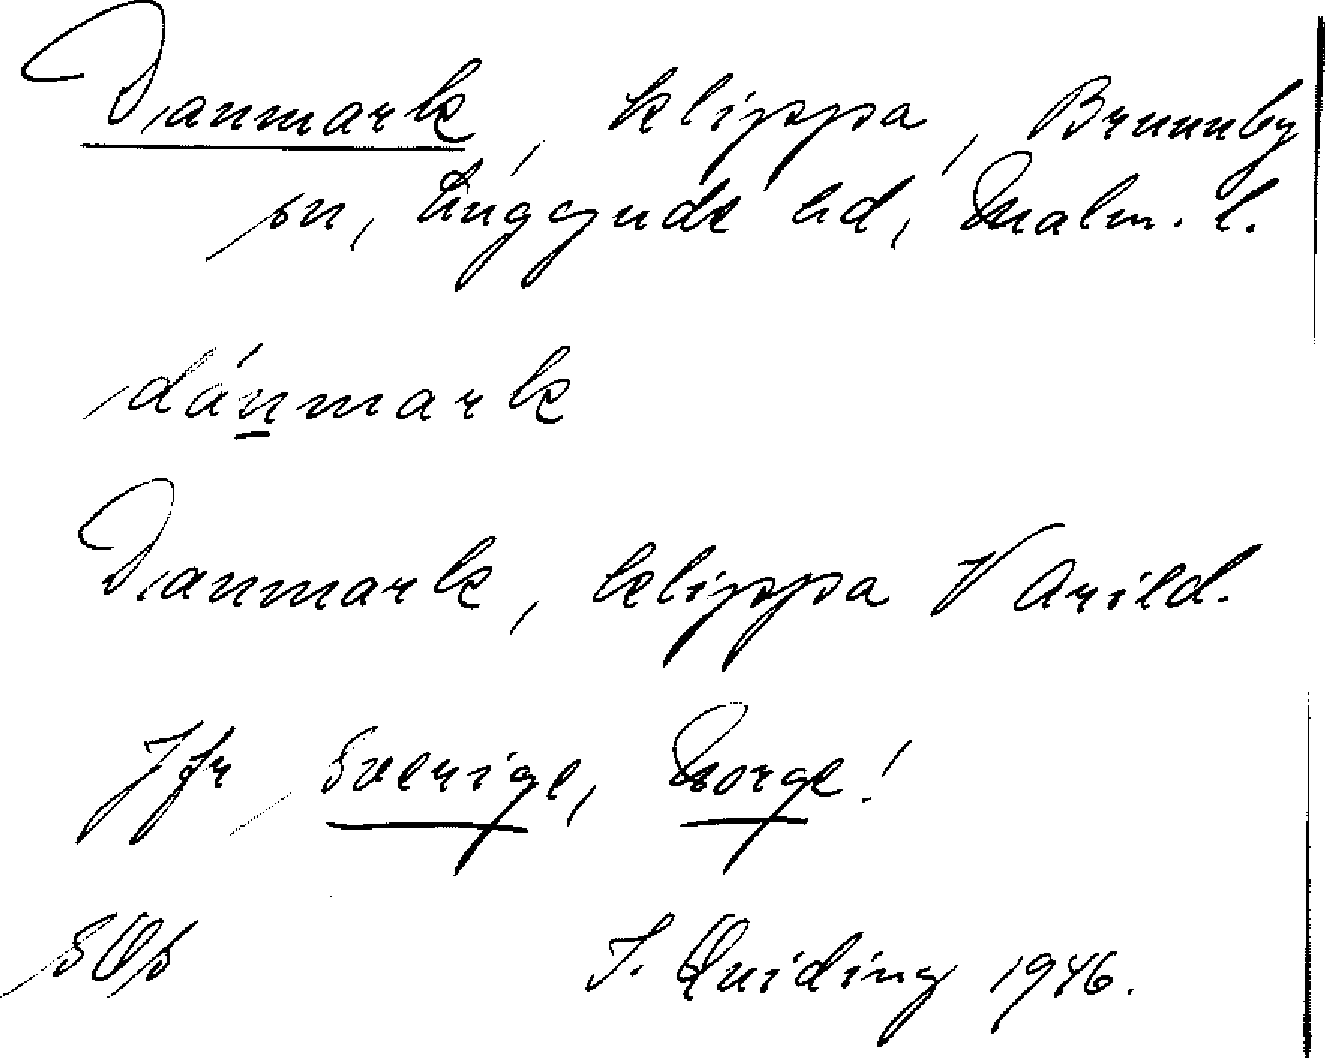 Danmark, klippa, Brunnby
sn, Luggude hd, Malm. l.
dánmark
Danmark, klippa V Arild.
Jfr Sverige, Norge!
J. Quiding 1946.